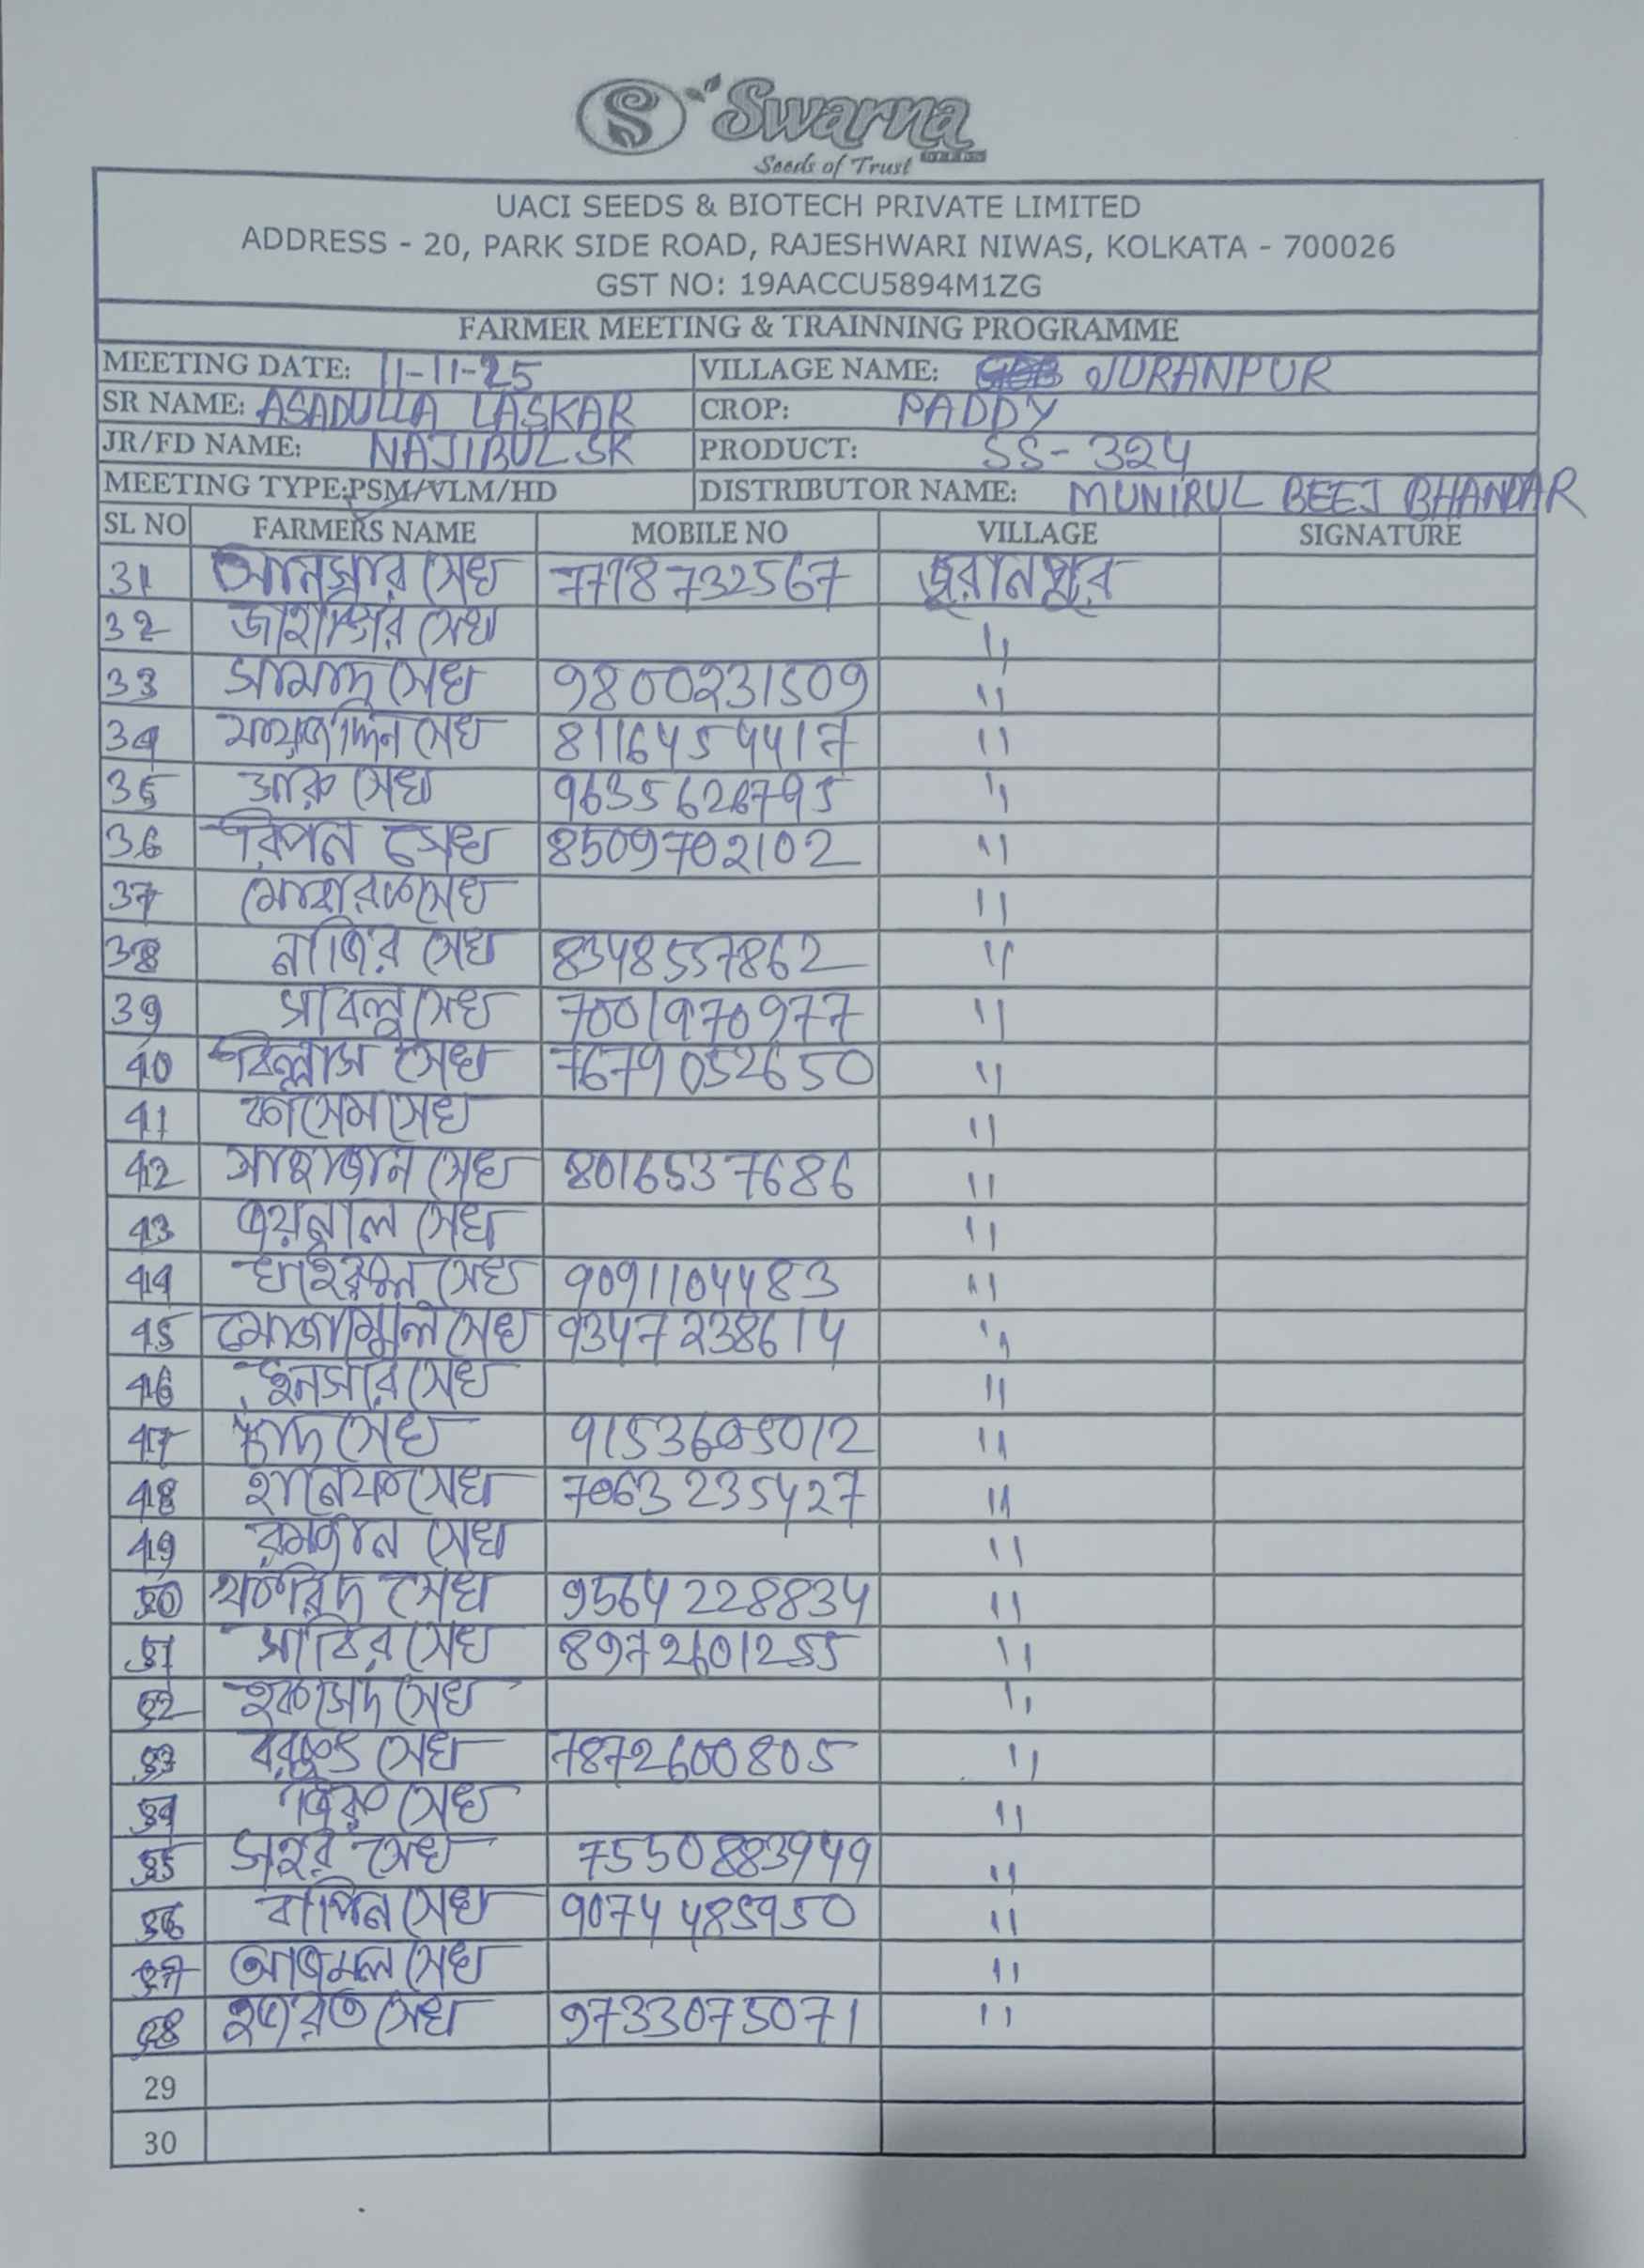 Swarna
Seeds of Trust
UACI SEEDS & BIOTECH PRIVATE LIMITED
ADDRESS - 20, PARK SIDE ROAD, RAJESHWARI NIWAS, KOLKATA - 700026
GST NO: 19AACCU5894M1ZG
FARMER MEETING & TRAINNING PROGRAMME
MEETING DATE: 11-11-25 VILLAGE NAME: JURANPUR
SR NAME: ASADULLA LASKAR CROP: PADDY
JR/FD NAME: NAJIBUL SK PRODUCT: SS-324
MEETING TYPE:PSM/VLM/HD DISTRIBUTOR NAME: MUNIRUL BEEJ BHANDAR
SL NO FARMERS NAME MOBILE NO VILLAGE SIGNATURE
31 আনসার সেখ 7718732567 জুরানপুর
32 জাহাঙ্গির সেখ "
33 সামাদ সেখ 9800231509 "
34 সেখ 8116454417 "
35 সেখ 9635626795 "
36 রিপন সেখ 8509702102 "
37 মোবারক সেখ "
38 নাজির সেখ 8348557862 "
39 সাবলু সেখ 7001970977 "
40 সেখ 7679052650 "
41 কাসেম সেখ "
42 সাহাজান সেখ 8016537686 "
43 জয়নাল সেখ "
44 খাইরুল সেখ 9091104483 "
45 মোজাম্মেল সেখ 9347238614 "
46 ইনসার সেখ "
47 চাঁদ সেখ 9153605012 "
48 হানেফ সেখ 7063235427 "
49 রমজান সেখ "
50 ফরিদ সেখ 9564228834 "
51 সাবির সেখ 8972601255 "
52 সেখ "
53 সেখ 7872600805 "
54 সেখ "
55 সেখ 7550883949 "
56 বাপিন সেখ 9074485950 "
57 আজমল সেখ "
58 হজরত সেখ 9733075071 "
29
30